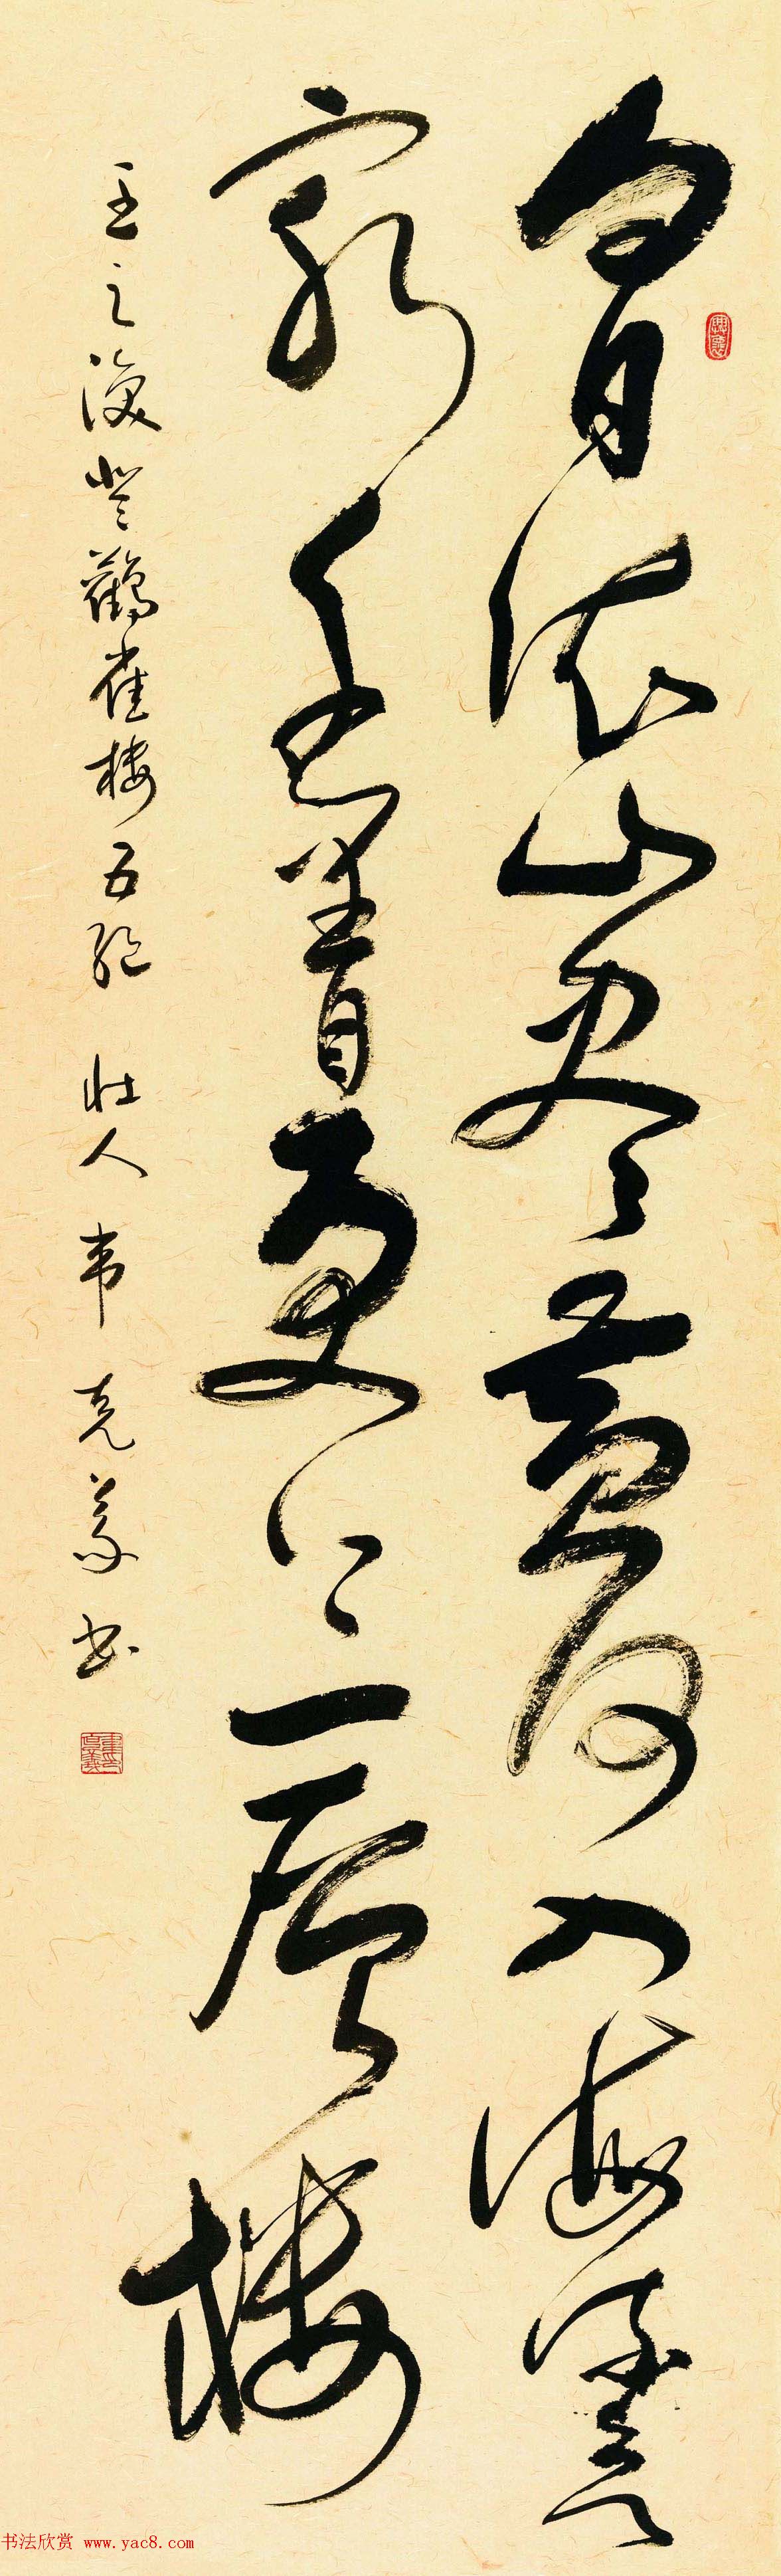 白日依山尽黄河入海流欲
穷千里目更上一层楼
王之涣登鹳雀楼五绝 壮人韦克义书
书法欣赏 www.yac8.com